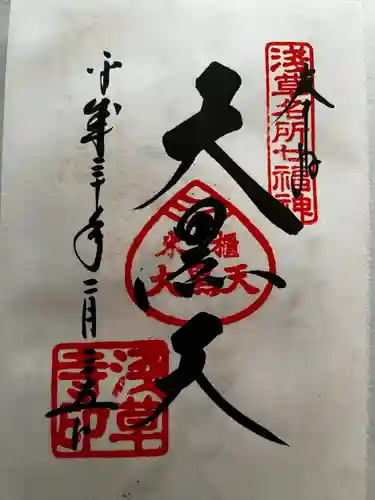 奉拝
浅草名所七福神
天黒天
米櫃
大黒天
平成三十年二月二五日
浅草寺印